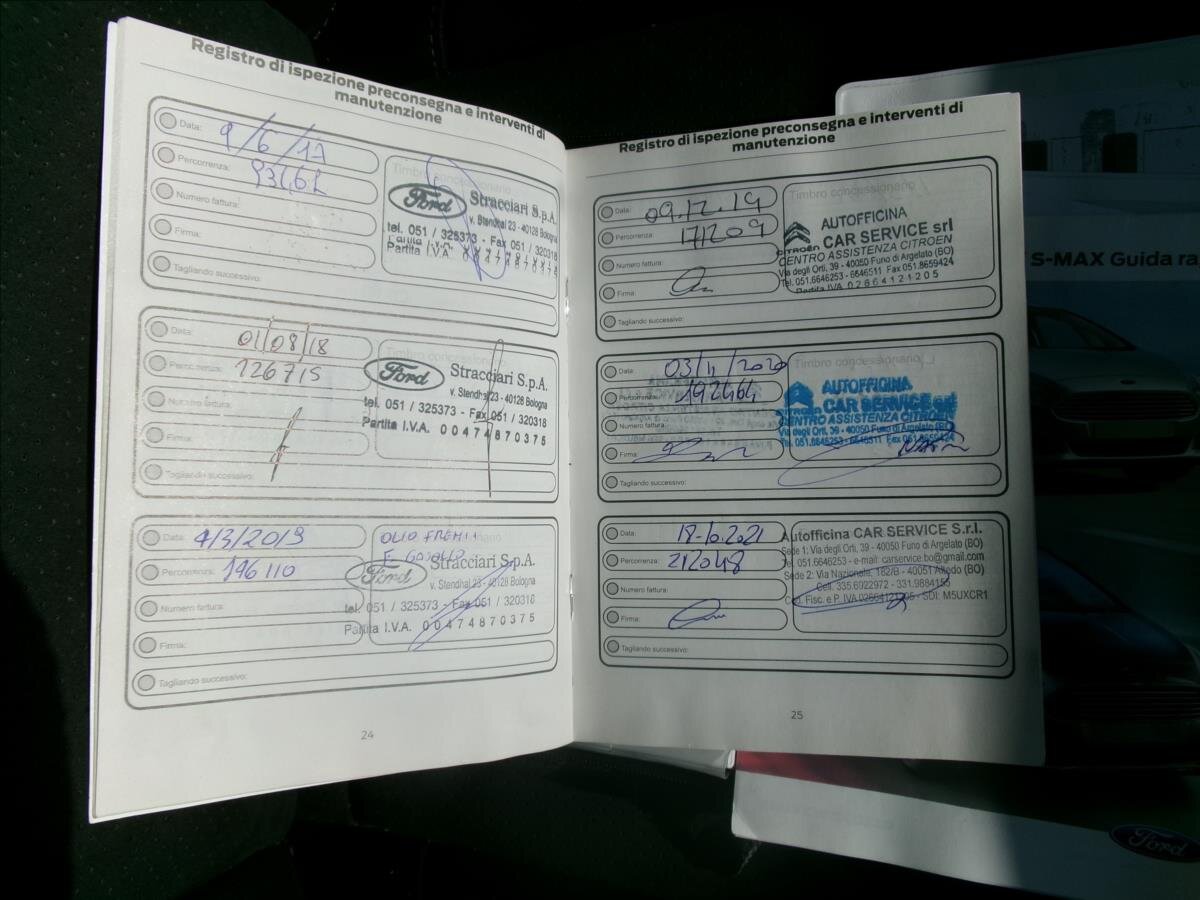 Registro di ispezione preconsegna e interventi di
manutenzione
Data: 9/6/17
Percorrenza:
Numero fattura:
Firma:
Tagliando successivo:
Timbro concessionario
Ford Stracciari S.p.A.
v. Stendhal 23 - 40128 Bologna
tel. 051 / 325373 - Fax 051 / 320318
Partita I.V.A. 00474870375
Data: 01/08/18
Percorrenza: 126715
Numero fattura:
Firma:
Tagliando successivo:
Timbro concessionario
Ford Stracciari S.p.A.
v. Stendhal 23 - 40128 Bologna
tel. 051 / 325373 - Fax 051 / 320318
Partita I.V.A. 00474870375
Data: 4/3/2019
Percorrenza: 146110
Numero fattura:
Firma:
Tagliando successivo:
OLIO FRENI
E GASOLIO
Ford Stracciari S.p.A.
v. Stendhal 23 - 40128 Bologna
tel. 051 / 325373 - Fax 051 / 320318
Partita I.V.A. 00474870375
24
Registro di ispezione preconsegna e interventi di
manutenzione
Data: 09.12.19
Percorrenza: 171209
Numero fattura:
Firma:
Tagliando successivo:
Timbro concessionario
AUTOFFICINA
CITROËN CAR SERVICE srl
CENTRO ASSISTENZA CITROEN
Via degli Orti, 39 - 40050 Funo di Argelato (BO)
Tel. 051.6646253 - 6646511 Fax 051.8659424
Partita IVA 02664121205
Data: 03/11/2020
Percorrenza: 192464
Numero fattura:
Firma:
Tagliando successivo:
Timbro concessionario
AUTOFFICINA
CAR SERVICE srl
CENTRO ASSISTENZA CITROEN
Via degli Orti, 39 - 40050 Funo di Argelato (BO)
Tel. 051.6646253 - 6646511 Fax 051.8659424
Data: 18-10.2021
Percorrenza: 212048
Numero fattura:
Firma:
Tagliando successivo:
Autofficina CAR SERVICE S.r.l.
Sede 1: Via degli Orti, 39 - 40050 Funo di Argelato (BO)
Tel. 051.6646253 - e-mail: carservice.bo@gmail.com
Sede 2: Via Nazionale, 162/B - 40051 Altedo (BO)
Cell. 335.6922972 - 331.9884155
Cod. Fisc. e P. IVA 02664121205 - SDI: M5UXCR1
25
S-MAX Guida
Ford